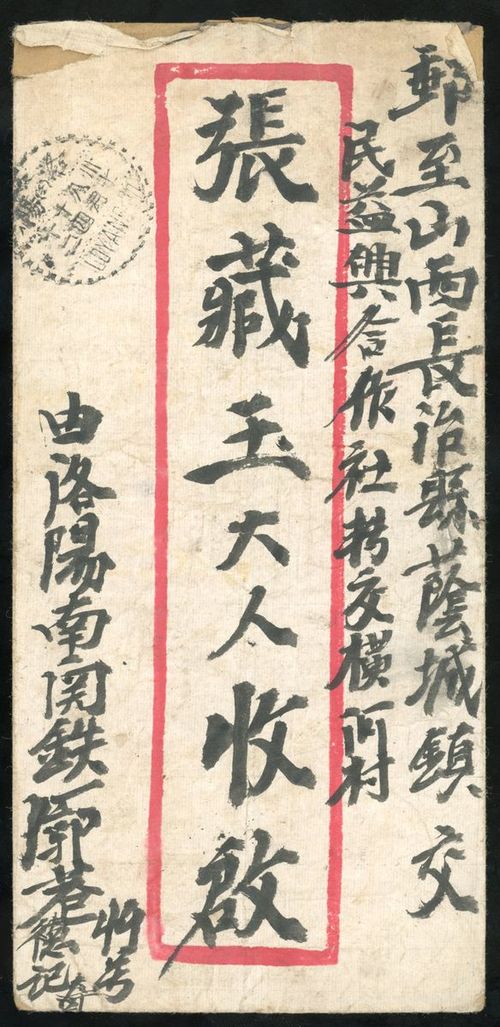 郵至山西長治縣蔭城鎮交
民益興合作社轉交橫河村
張藏玉大人收啟
由洛陽南関鉄廓巷
德記寄
LOYANG